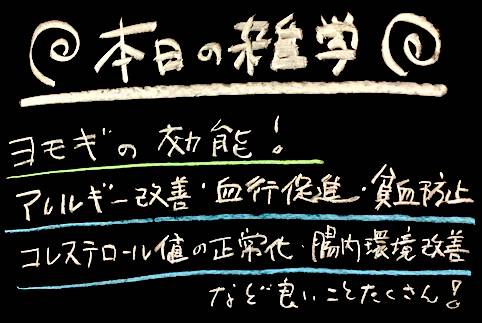 本日の雑学
ヨモギの効能!
アレルギー改善・血行促進・貧血防止
コレステロール値の正常化・腸内環境改善
など良いことたくさん!